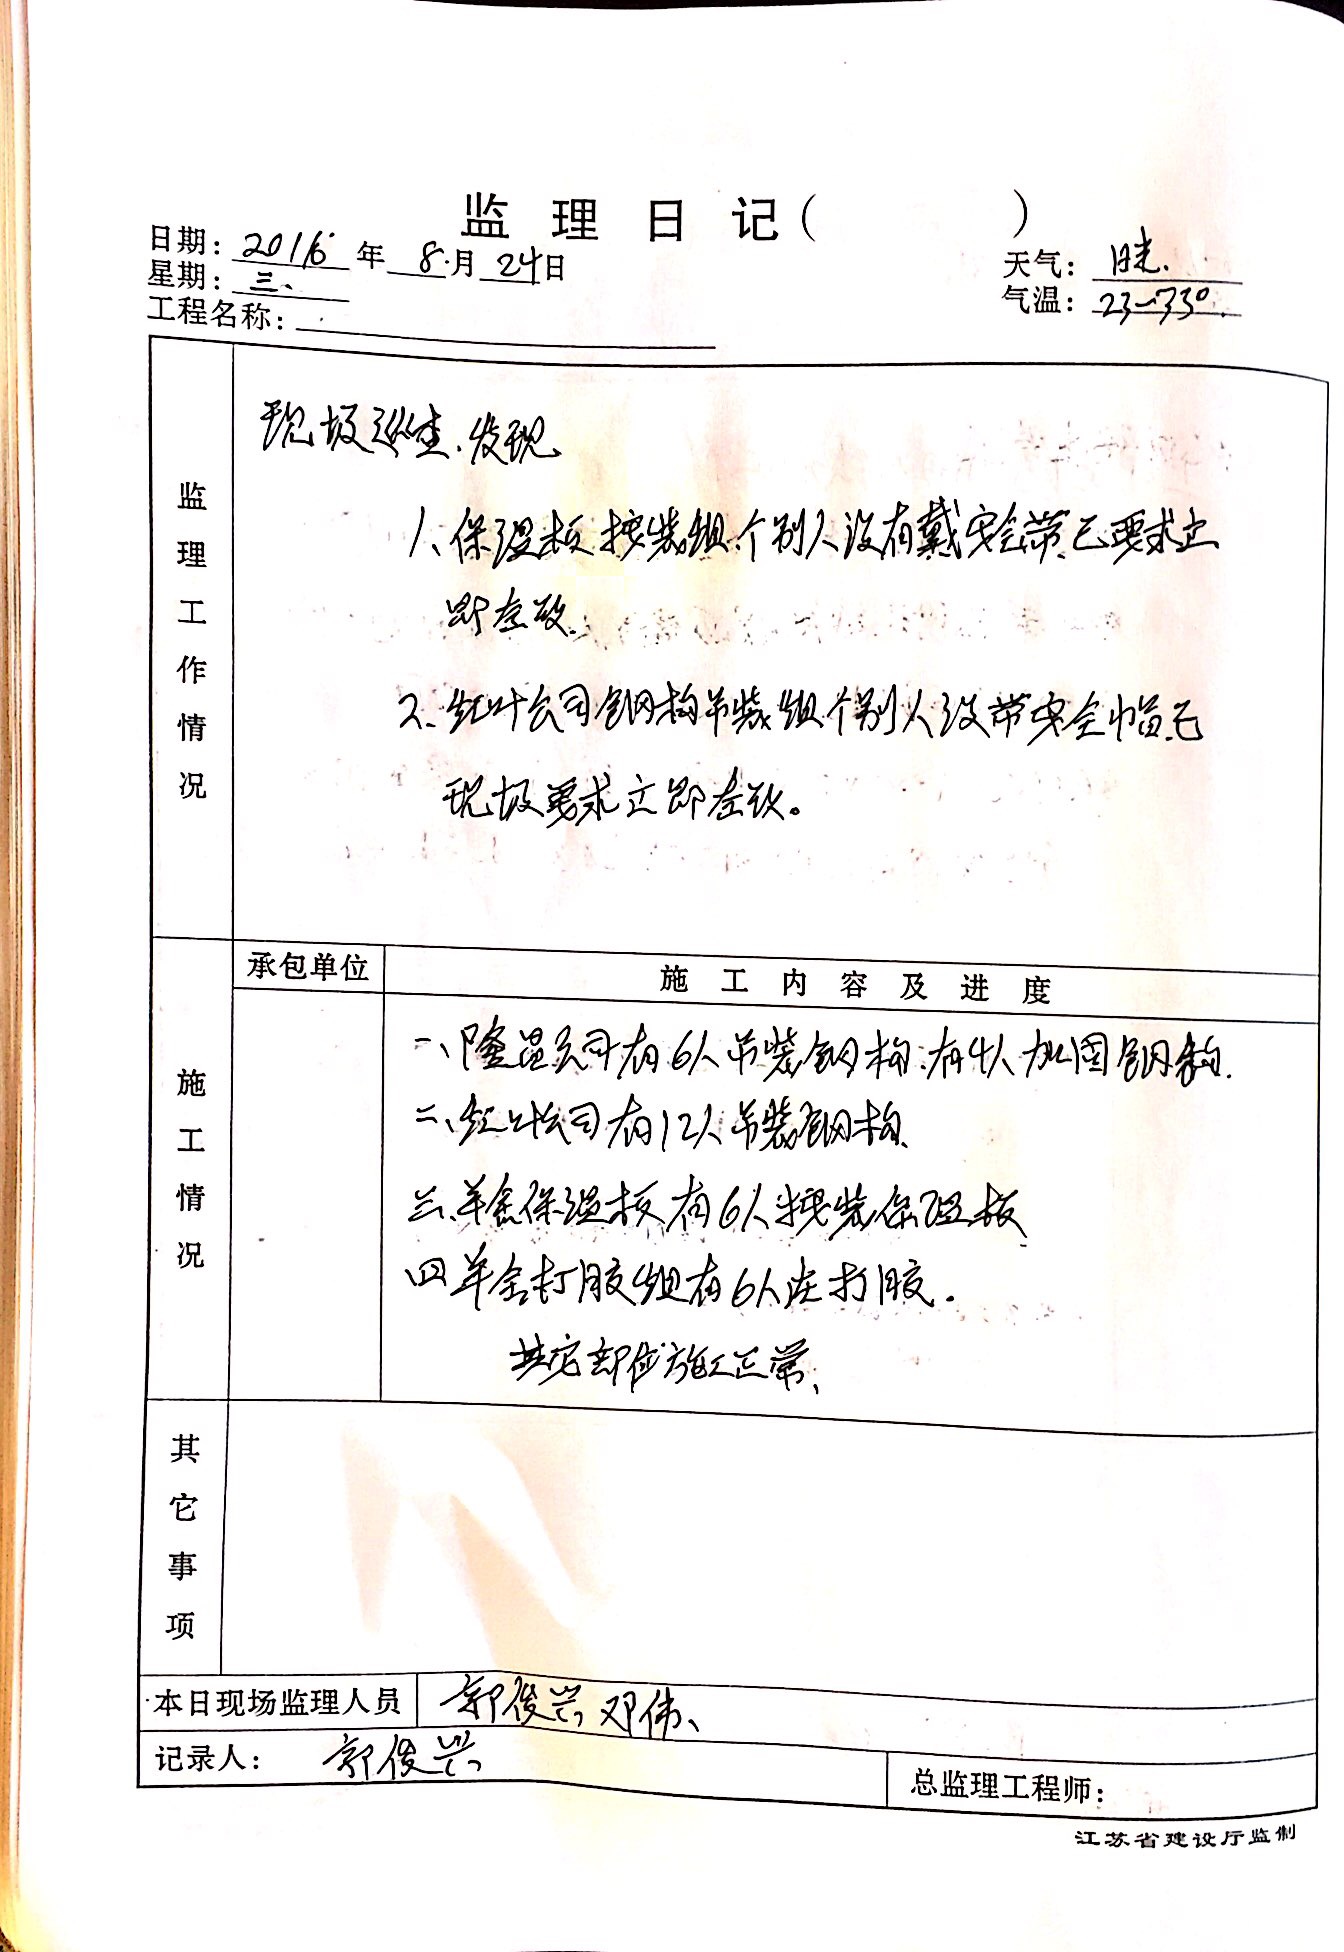 监理日记（ ）
日期：2016年8月24日
星期：三、
工程名称：
天气：晴.
气温：23—33°
监理工作情况
现场巡查、发现
1、保温板按装组个别人没有戴安全带.已要求立
即整改.
2、红叶公司钢构吊装组个别人没带安全帽已
现场要求立即整改。
施工情况
承包单位
施工内容及进度
一、隆 公司有6人吊装钢构.有4人加固钢构.
二、红叶公司有12人吊装钢构.
三、羊舍保温板有6人按装保温板
四羊舍打胶组有6人在打胶.
其它部位施工正常、
其它事项
本日现场监理人员 郭俊兴 邓伟、
记录人：郭俊兴
总监理工程师：
江苏省建设厅监制